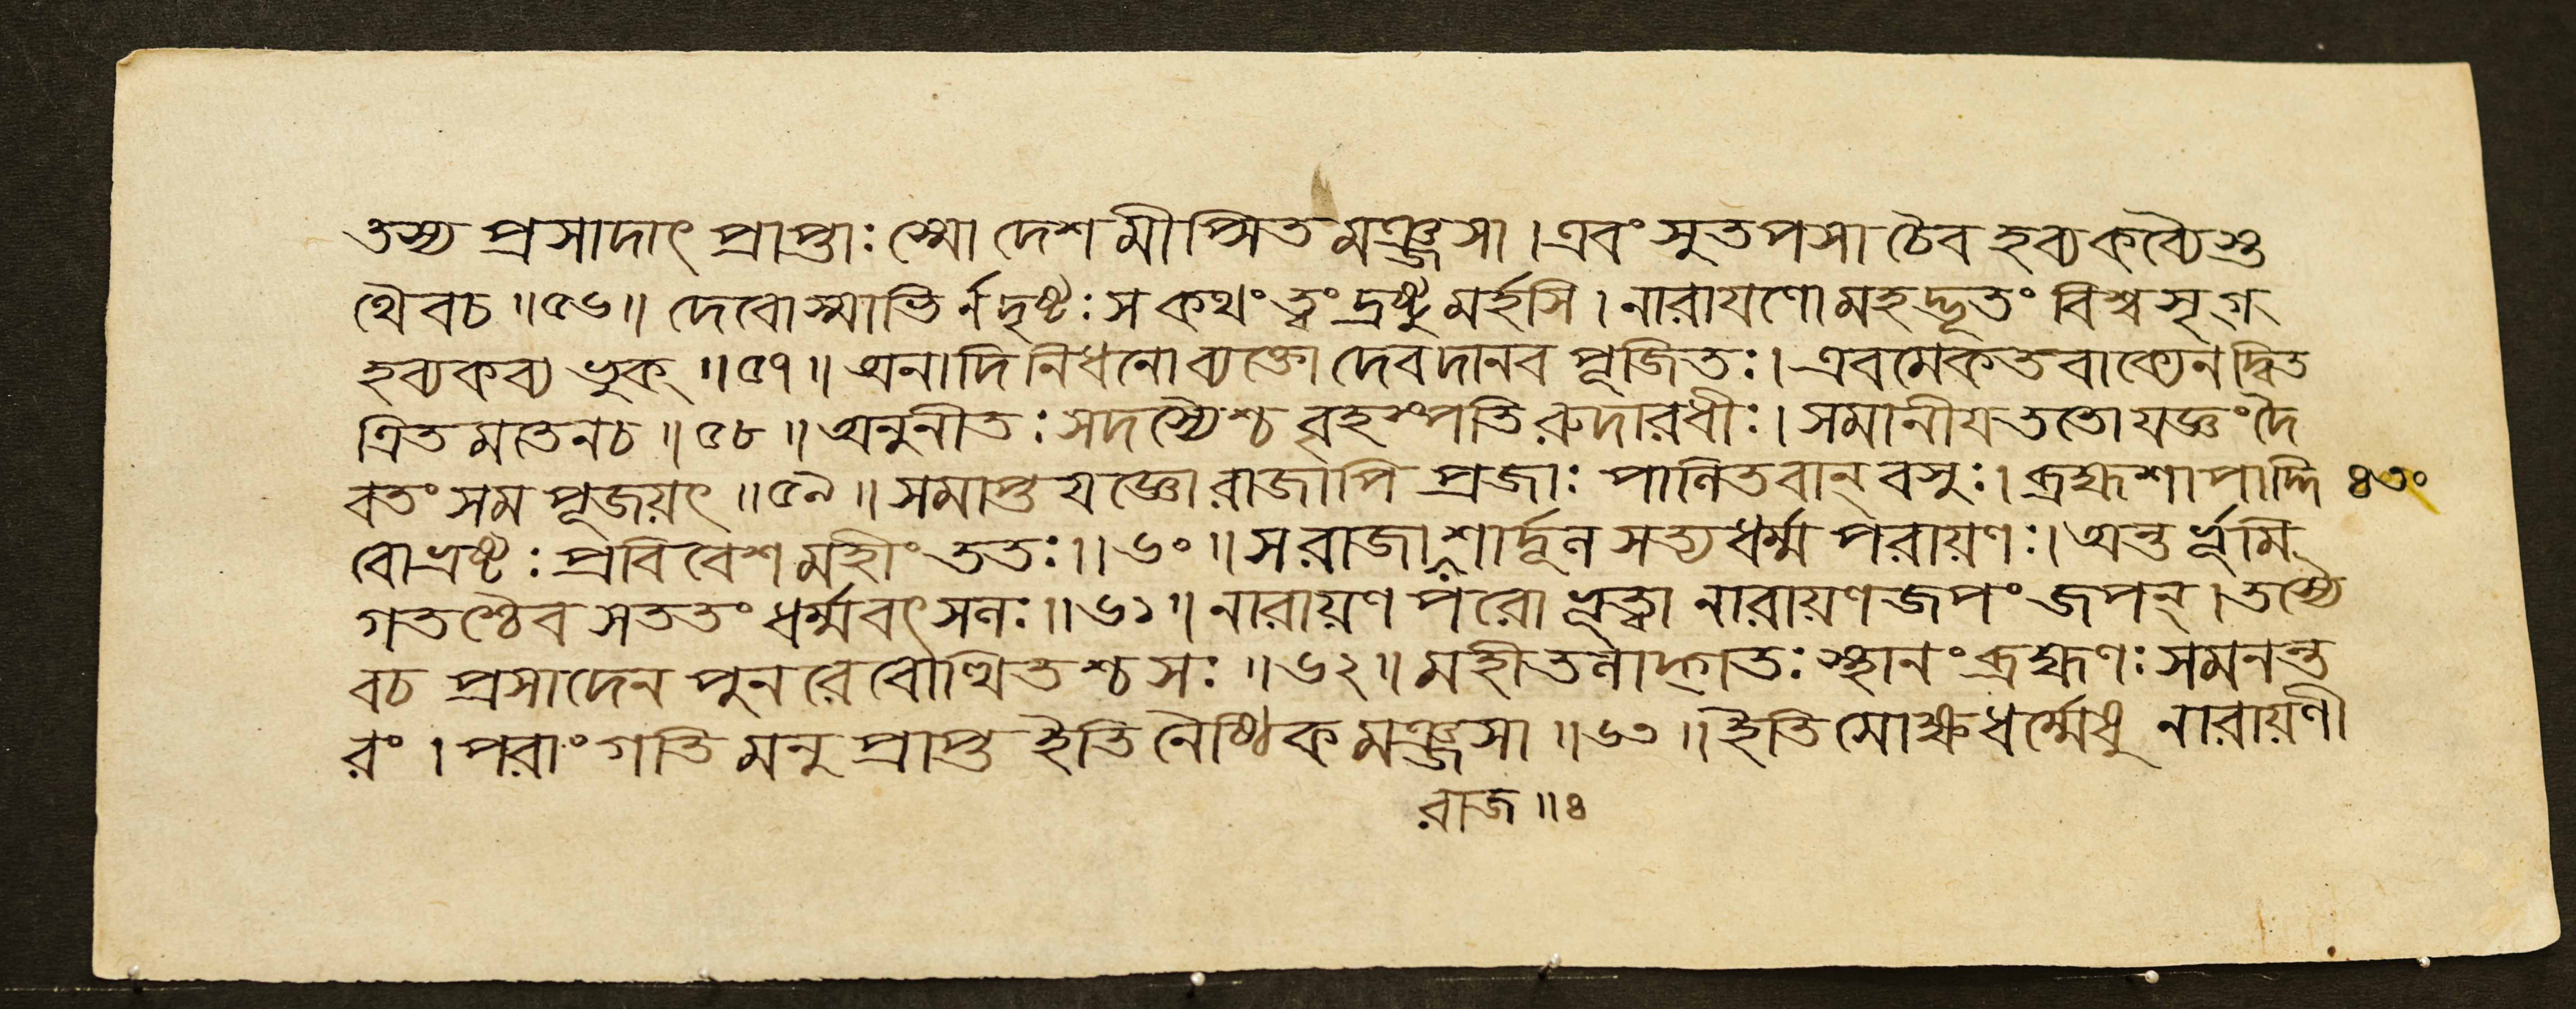 তস্য প্রসাদাৎ প্রাপ্তাঃ স্মো দেশ মীপ্সিত মঞ্জসা । এবং সুতপসা চৈব হব্যকব্যৈস্ত
থৈবচ ॥ ৫৬ ॥ দেবোস্মাভির্ন দৃষ্টঃ স কথং ত্বং দ্রষ্টুমর্হসি । নারাযণো মহদ্ভূতং বিশ্বসৃগ্
হব্যকব্য ভুক্ ॥ ৫৭ ॥ অনাদি নিধনো ব্যক্তো দেবদানব পূজিতঃ । এবমেকত বাক্যেন দ্বিত
ত্রিত মতেনচ ॥ ৫৮ ॥ অনুনীতঃ সদস্যৈশ্চ বৃহস্পতি রুদারধীঃ । সমানীয ততো যজ্ঞং দৈ
বতং সম পূজয়ৎ ॥ ৫৯ ॥ সমাপ্ত যজ্ঞো রাজাপি প্রজাঃ পালিতবান্ বসুঃ । ব্রহ্মশাপাদ্দি ৪তং
বোভ্রষ্টঃ প্রবিবেশ মহীং ততঃ ॥ ৬০ ॥ স রাজা শার্দূল সত্যধর্ম্ম পরায়ণঃ । অন্তর্ভূমি
গতশ্চৈব সততং ধর্ম্মবৎসলঃ ॥ ৬১ ॥ নারায়ণ পরো ভূত্বা নারায়ণ জপং জপন্ । তস্যৈ
বচ প্রসাদেন পুনরেবোত্থিতশ্চ সঃ ॥ ৬২ ॥ মহীতলাদ্গতঃ স্থানং ব্রহ্মণঃ সমনন্ত
রং । পরাং গতি মনু প্রাপ্ত ইতি নৈষ্ঠিক মঞ্জসা ॥ ৬৩ ॥ ইতি মোক্ষধর্ম্মেষু নারায়ণী
রাজ ॥ ৪